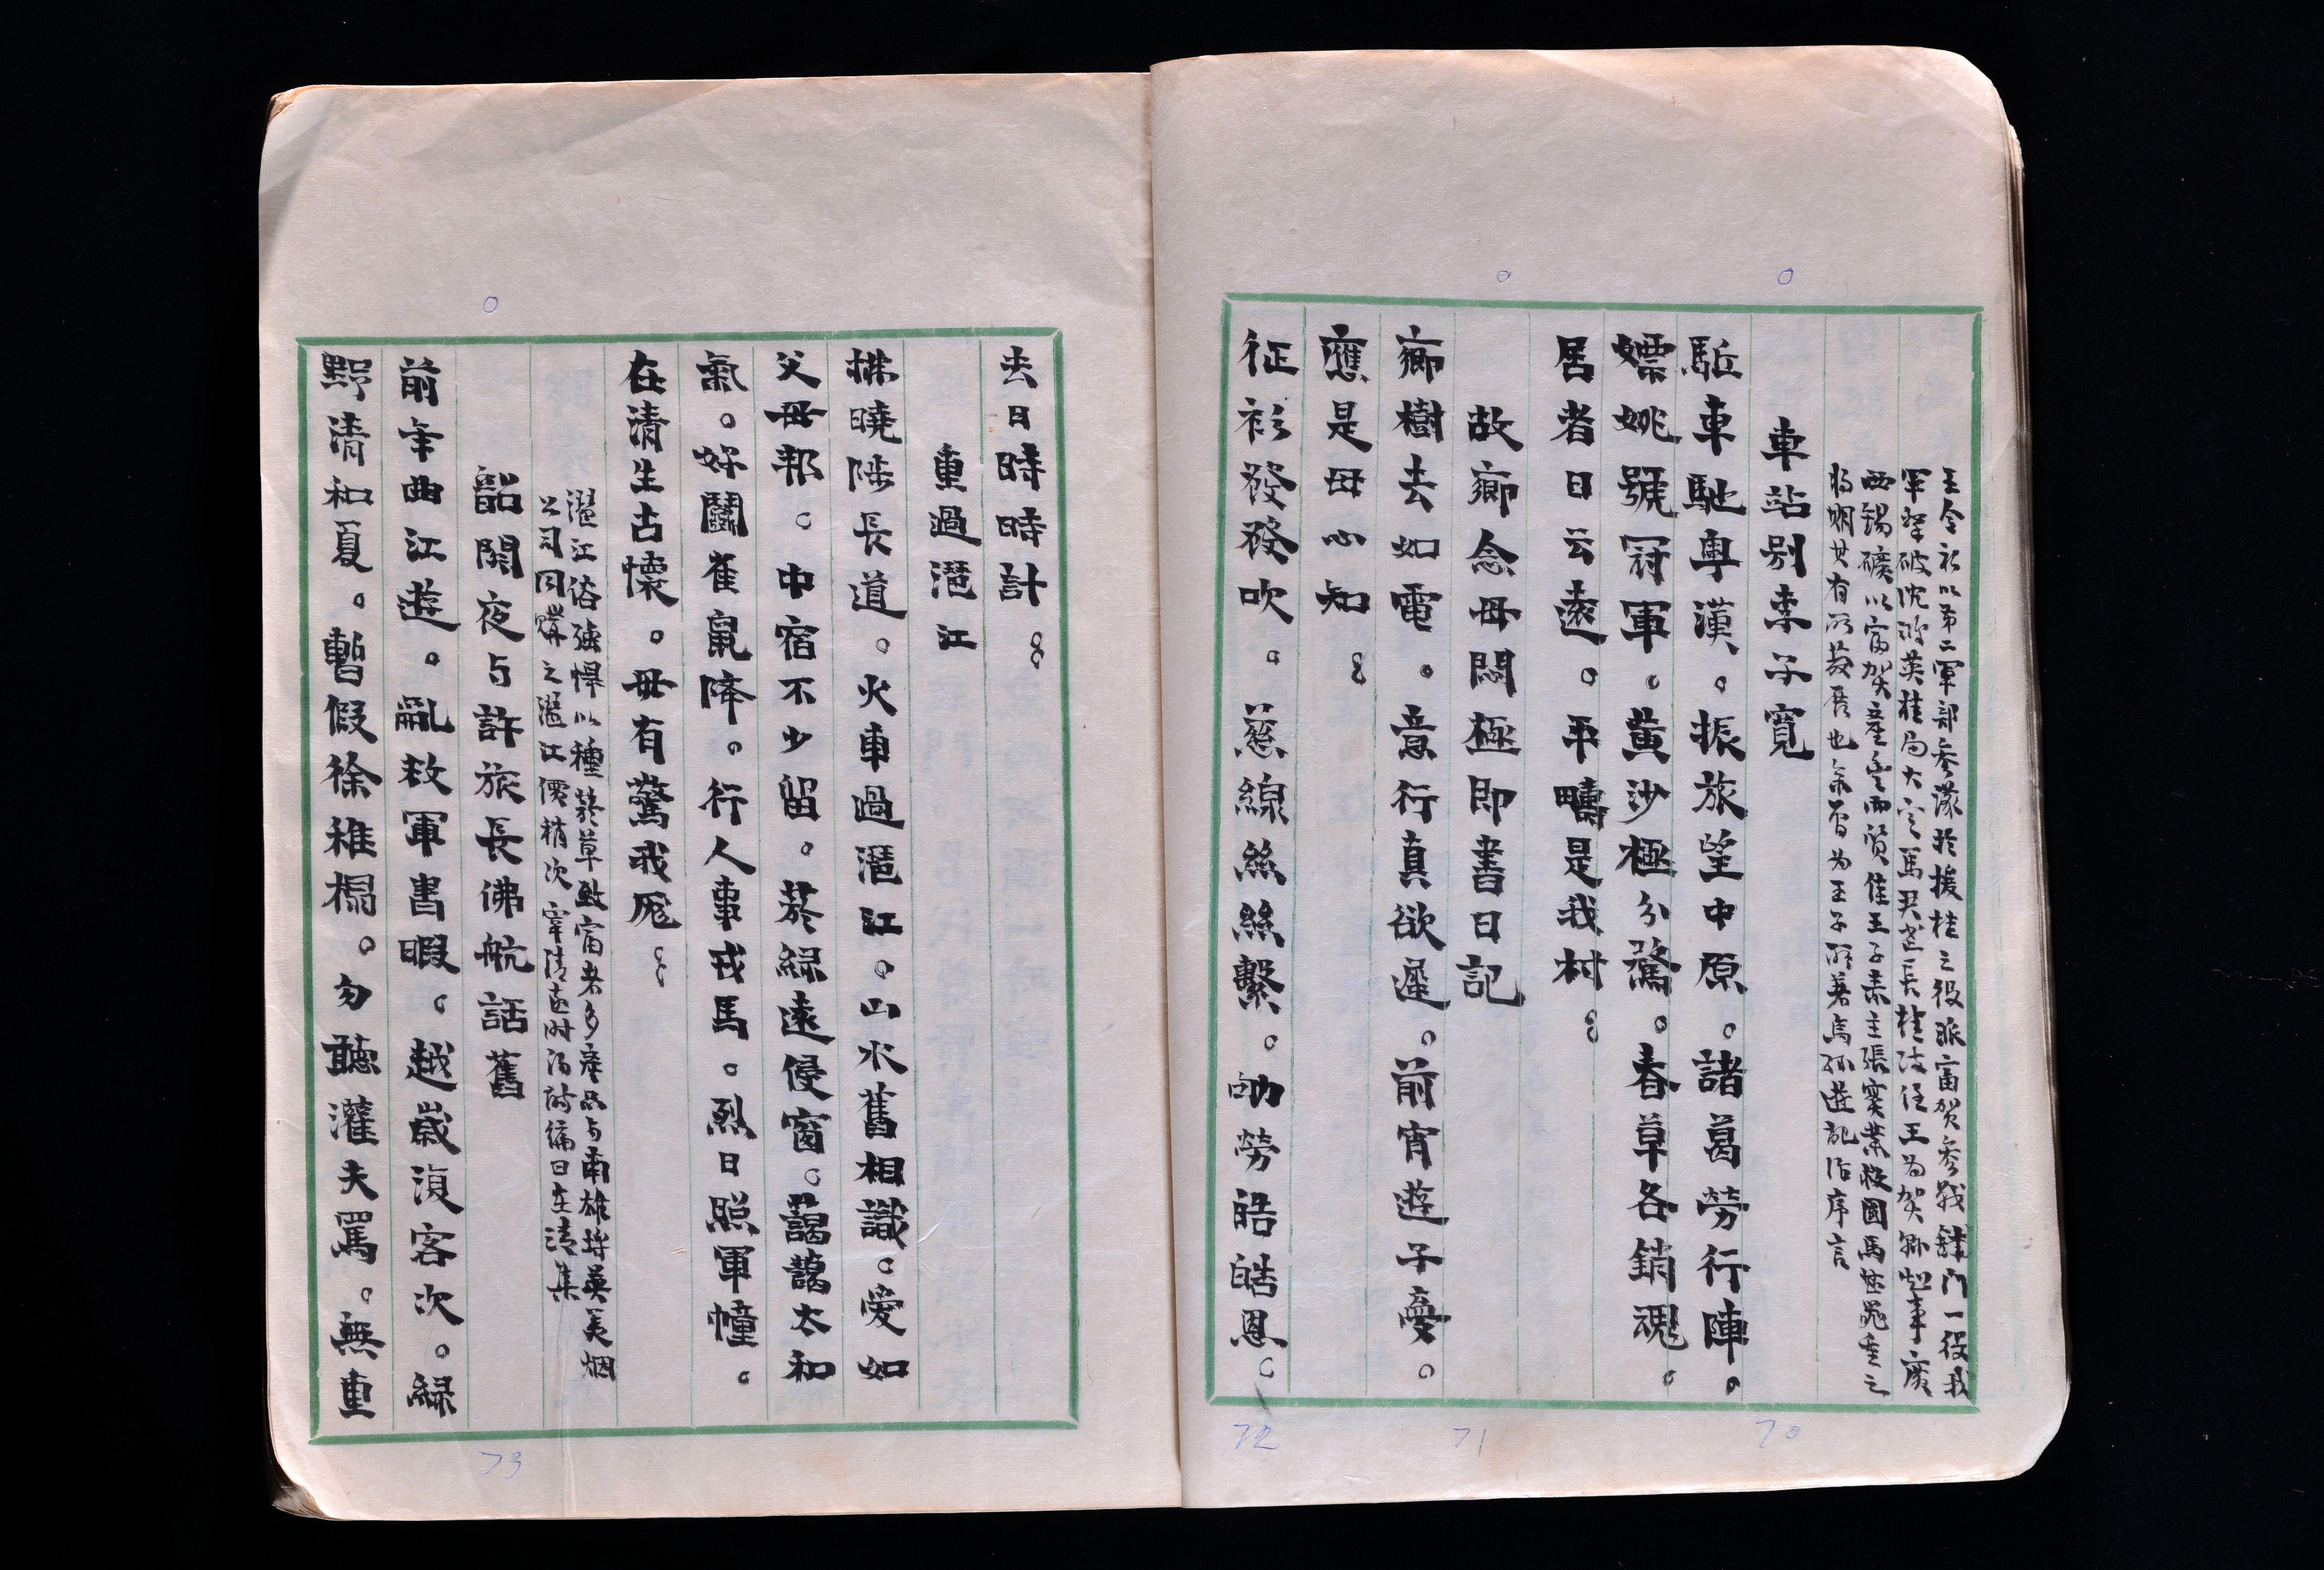 王令初以第二軍部參謀於援桂之役派富賀參戰鋒門一役我
軍擊破沈鴻英桂局大定馬君武長桂政任王為賀縣知事廣
西錫礦以富賀產多而質佳王子素主張實業救國馬甚器重之
將期其有所發展也余曾為王子所著烏孫遊記作序言
車站別李子寬
駈車馳專漢。振旅望中原。諸葛勞行陣。
嫖姚號冠軍。黃沙極分騖。春草各銷魂。
居者日云遠。平疇是我村。
故鄉念母罔極即書日記
鄉樹去如電。意行真欲遲。前宵遊子憂。
應是母心知。
征衫發發吹。慈線絲絲繫。劬勞皓皓恩。
去日時時計。
重過滬江
拂曉陟長道。火車過滬江。山水舊相識。愛如
父母邦。中宿不少留。菸綠遠侵窗。藹藹太和
氣。好鬭雀鼠降。行人事戎馬。烈日照軍幢。
在清生古懷。毋有驚我厖。
江俗強悍以種菸草致富者多產品与南雄埒英美烟
公司同購之 江價稍次宰清遠時 附編日在清集
韶關夜与許旅長佛航話舊
前年曲江遊。亂救軍書暇。越歲湞客次。綠
野清和夏。暫假徐稚榻。勿聽灌夫罵。無重
70
71
72
73